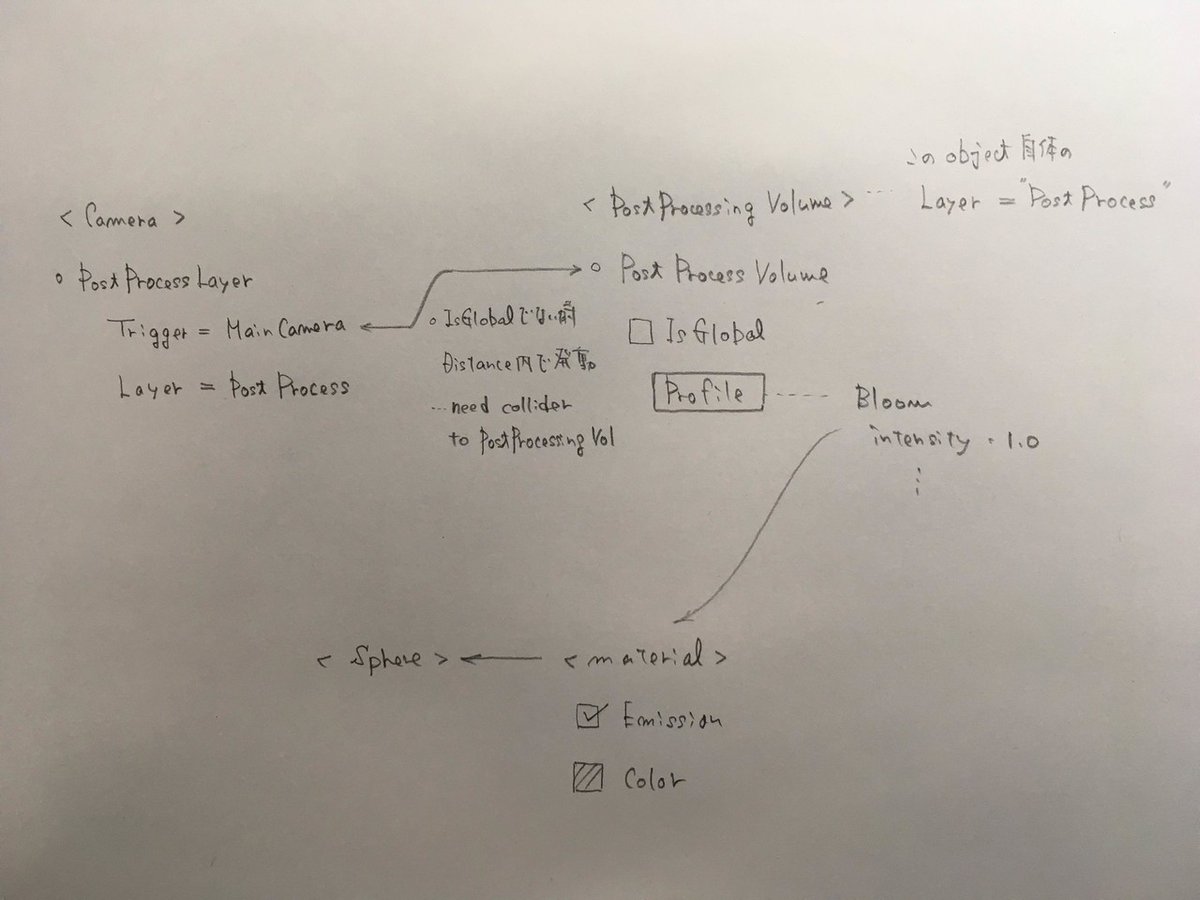 < Camera >
○ PostProcessLayer
Trigger = MainCamera
Layer = Post Process
○ IsGlobalでない時
Distance内で発動
…need collider
to PostProcessing Vol
< PostProcessing Volume > …
この object 自体の
Layer = "Post Process"
○ Post Process Volume
□ IsGlobal
Profile
Bloom
intensity · 1.0
⋮
< Sphere >
< material >
☑ Emission
Color